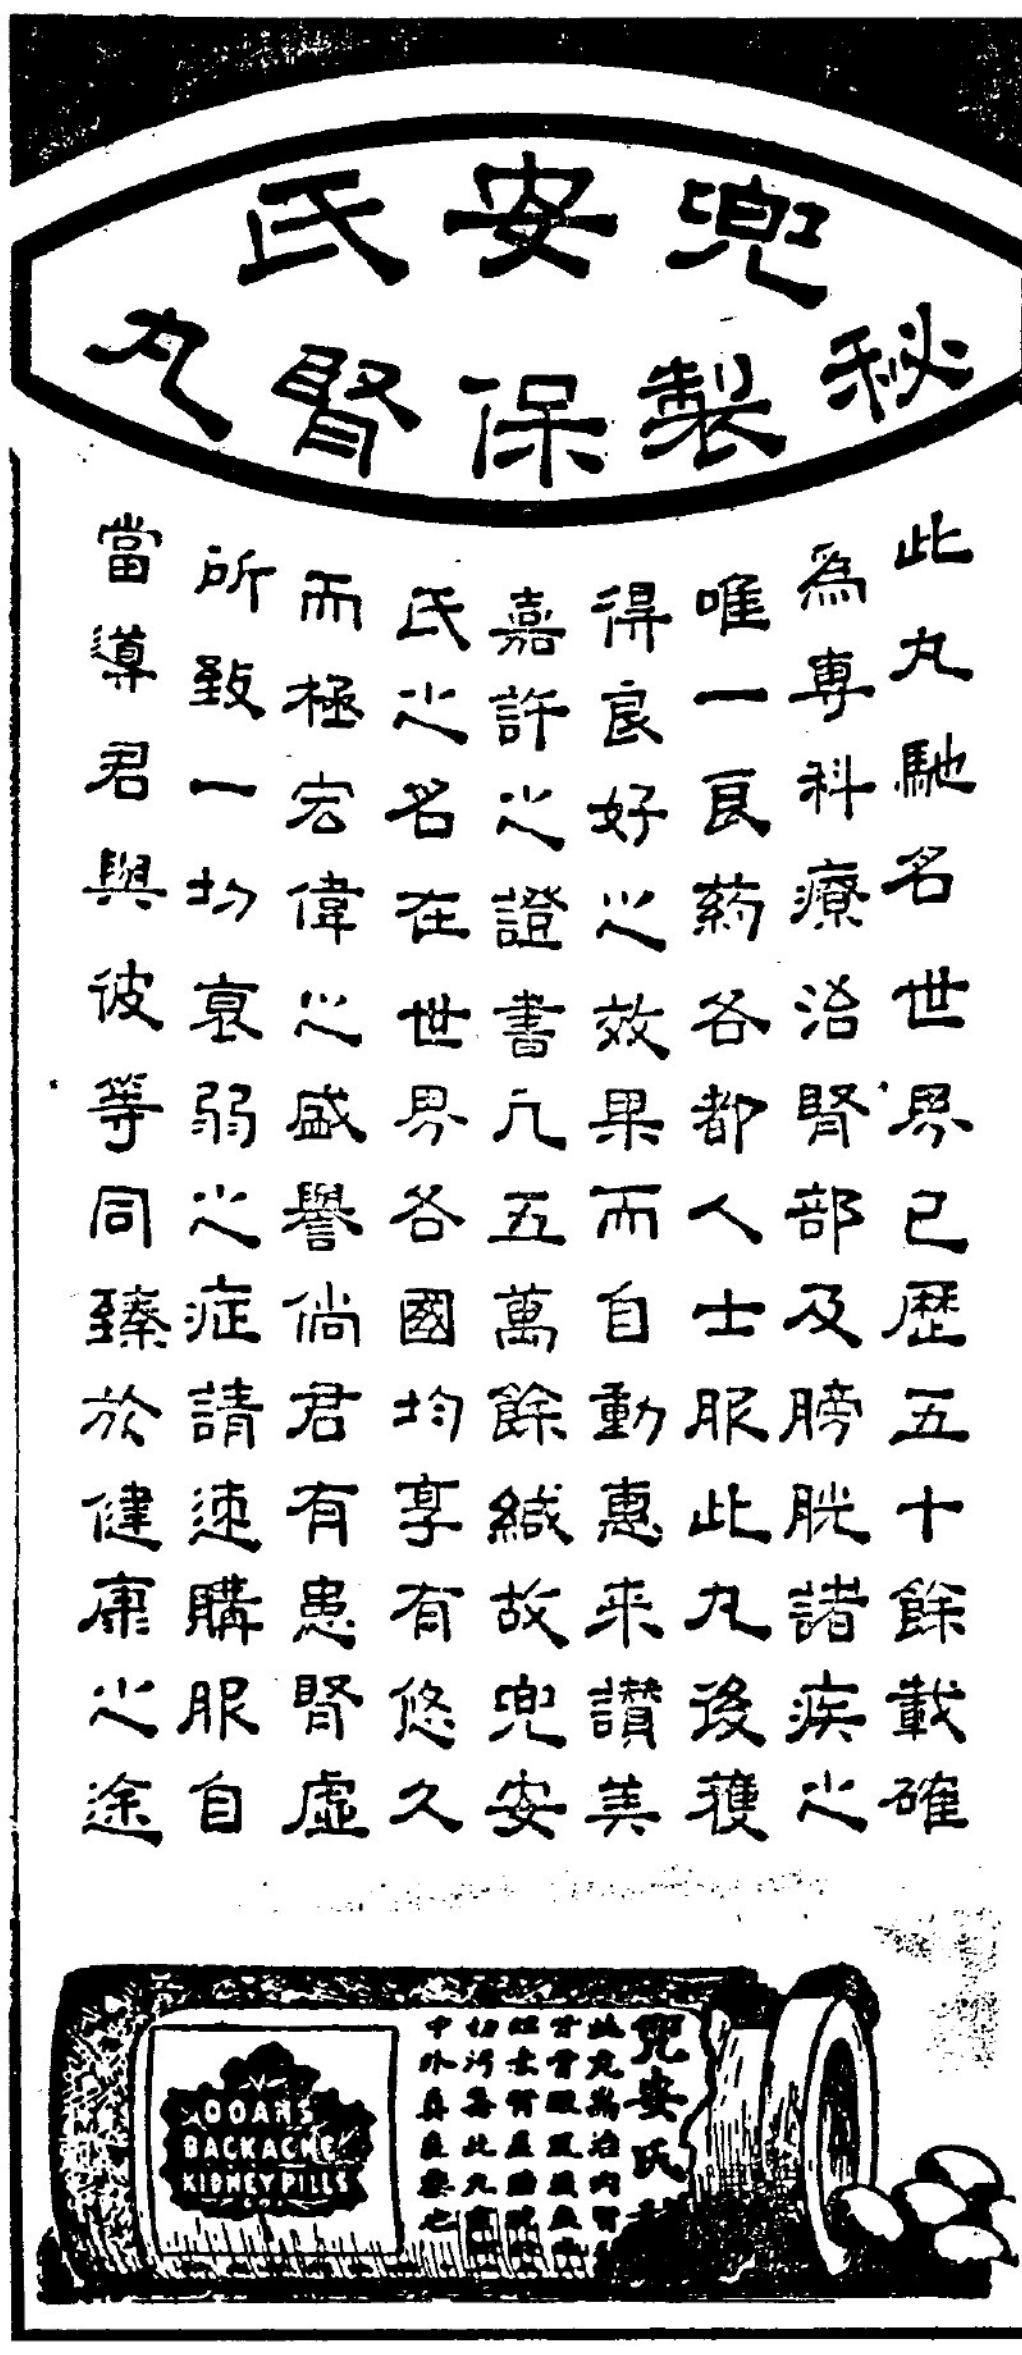 兜安氏
秘製保腎丸
此丸馳名世界已歷五十餘載確
為專科療治腎部及膀胱諸疾之
唯一良药各都人士服此丸後獲
得良好之效果而自動惠来讚美
嘉許之證書凢五萬餘緘故兜安
氏之名在世界各國均享有悠久
而極宏偉之盛譽倘君有患腎虛
所致一切衰弱之症請速購服自
當導君與彼等同臻於健康之途
兜安氏
中外真良藥也
DOANS
BACKACHE
KIDNEY PILLS